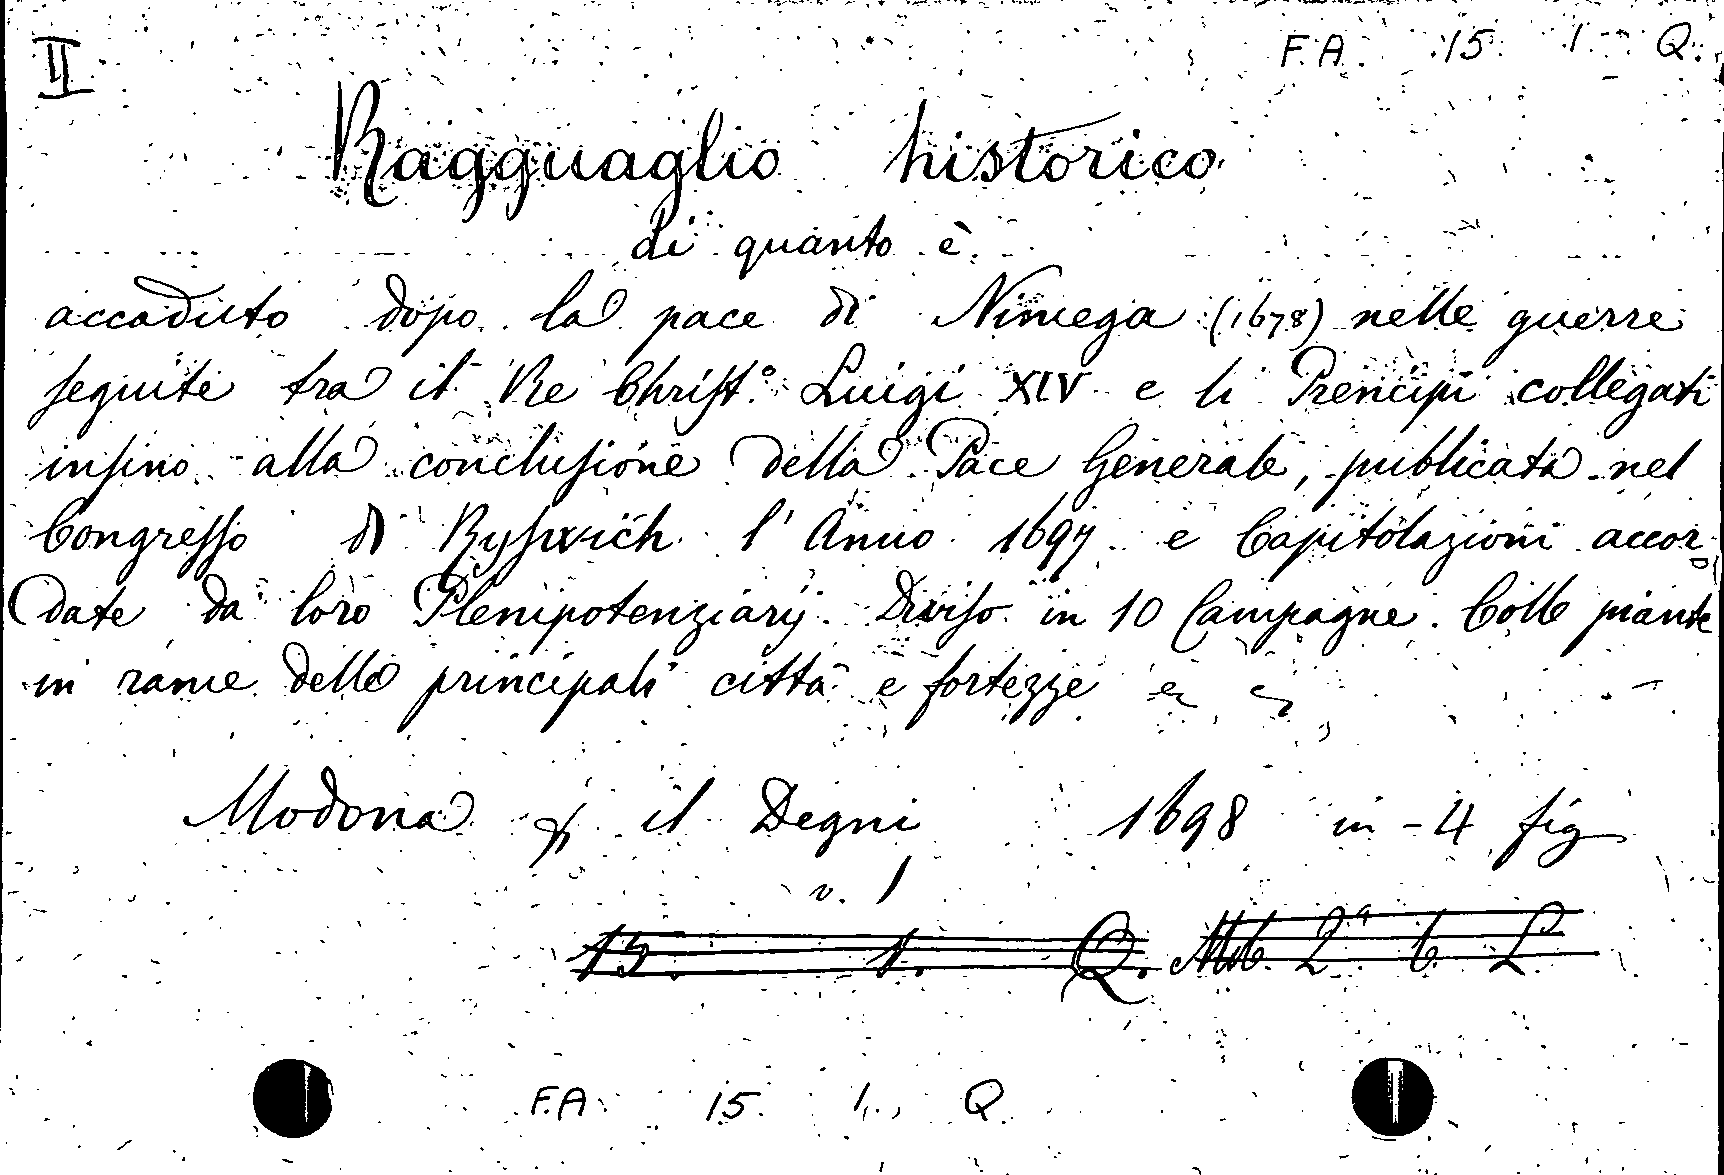 II
F.A. 15. 1. Q.
Ragguaglio historico
di quanto è
accaduto dopo la pace di Nimega (1678) nelle guerre
seguite tra il Re Christ.° Luigi XIV e li Prencipi collegati
insino alla conclusione della Pace Generale, publicata nel
Congresso di Ryswich l' Anno 1697 e Capitolazioni accor-
date da loro Plenipotenziarij. Diviso in 10 Campagne. Colle piante
in rame delle principali città e fortezze
Modona il Degni 1698 in-4 fig
v. 1
15. 1. Q.
F.A. 15. 1. Q